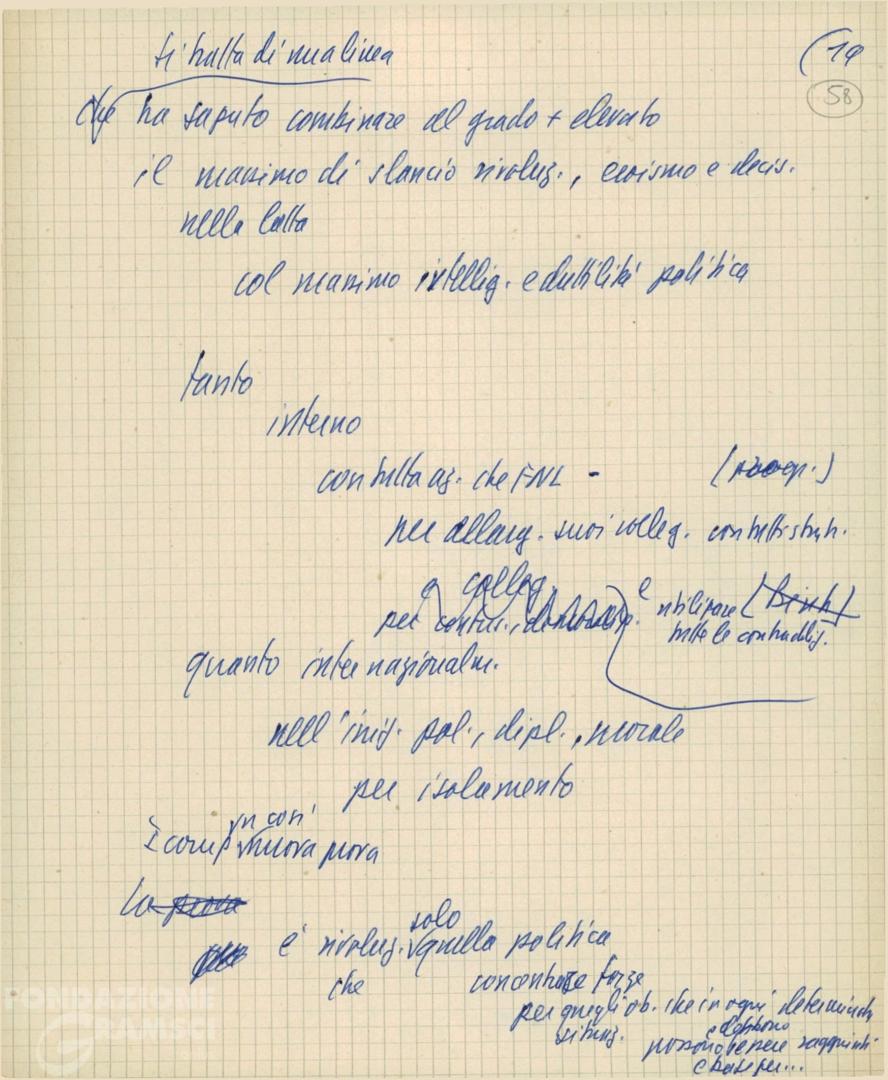 si tratta di una linea
(14
58
che ha saputo combinare al grado + elevato
il massimo di slancio rivoluz., eroismo e decis.
nella lotta
col massimo intellig. e duttilità politica
tanto
interno
con tutta az. che FNL -
per allarg. suoi colleg. con tutti strati.
e colleg.
per e utilizzare
tutte le contraddiz.
quanto internazionalm.
nell'iniz. pol., dipl., morale
per isolamento
È così
nuova prova
La
solo
è rivoluz. quella politica
che concentra forze
per quegli ob. che in ogni determinata
situaz. e debbono
possono essere raggiunti
e base per...